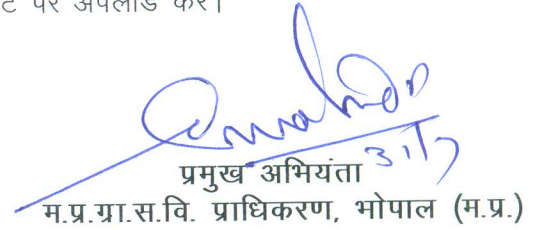 पर अपलोड करें।
31/7
प्रमुख अभियंता
म.प्र.ग्रा.स.वि. प्राधिकरण, भोपाल (म.प्र.)